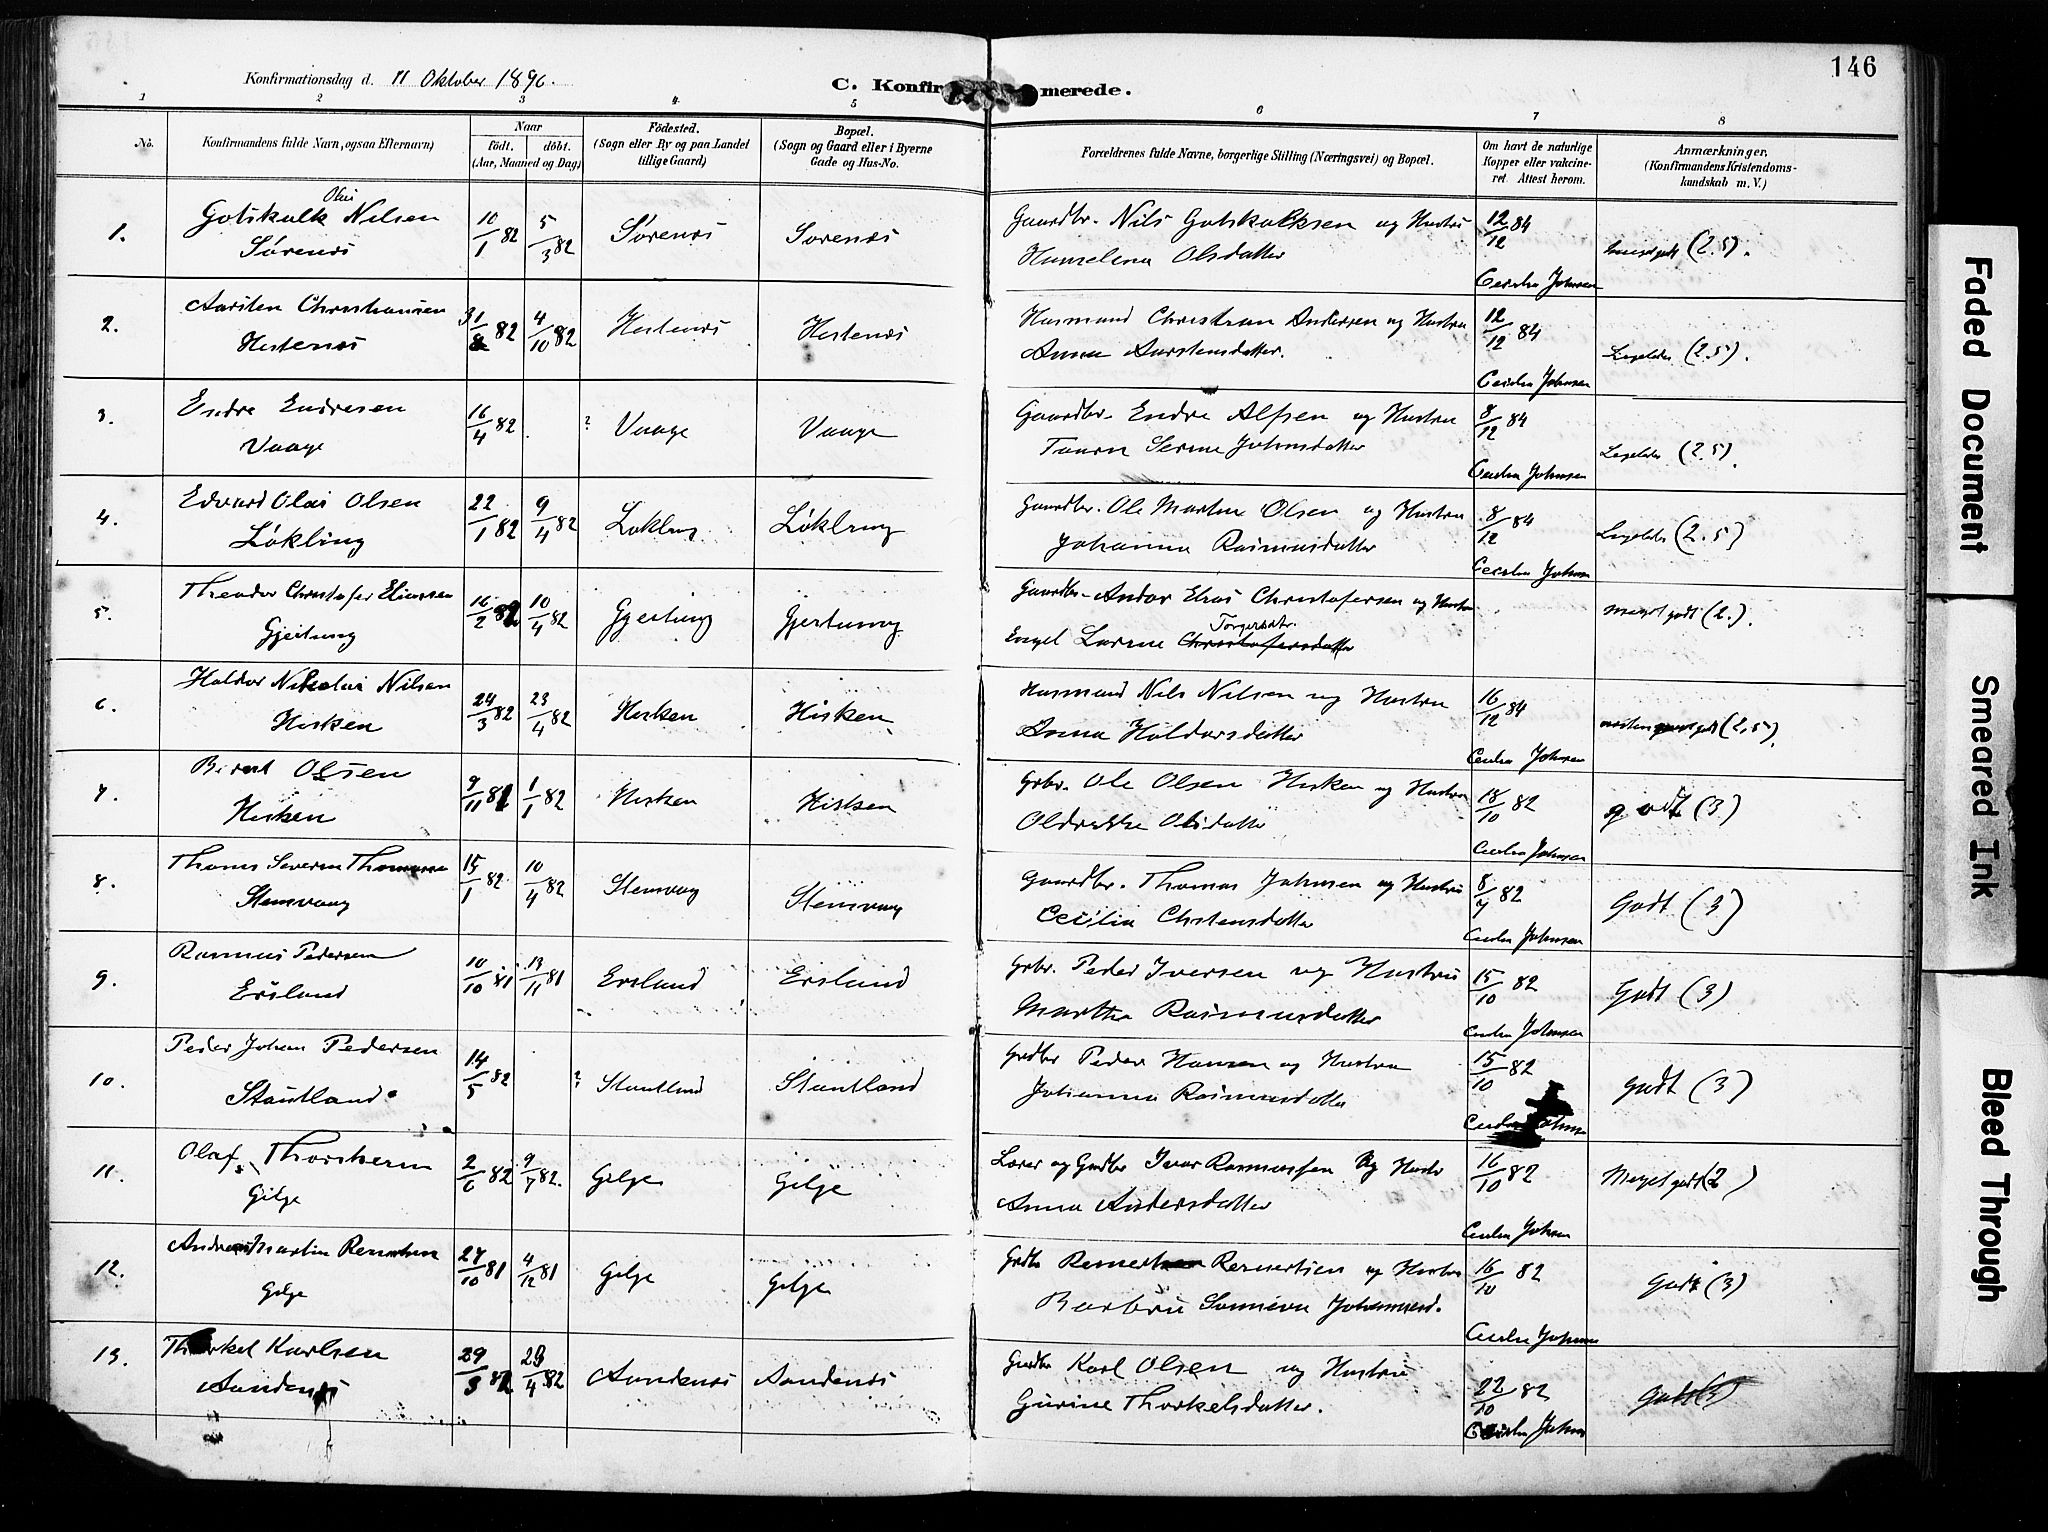 146
Konfirmationsdag d. 11 Oktober 1896.
C. Konfirmerede.
1 2 3 4 5 6 7 8
No.
Konfirmandens fulde Navn, ogsaa Efternavn)
Naar
födt. döbt.
(Aar, Maaned og Dag)
Födested.
(Sogn eller By og paa Landet
tillige Gaard)
Bopæl.
(Sogn og Gaard eller i Byerne
Gade og Hus-No.
Forældrenes fulde Navne, borgerlige Stilling (Næringsvei) og Bopæl.
Om havt de naturlige
Kopper eller vakcine-
ret. Attest herom.
Anmærkninger,
(Konfirmandens Kristendoms-
kundskab m. V.)
Olai
1. Gotskalk Nilsen 10/1 82 5/3 82 Sørenæs Sørenæs Gaardbr. Nils Gotskalksen og Hustru 12/12 84
Sørenæs Hanselena Olsdatter (2.5).
Cecilia Johnsen
2. Aarsten Christiansen 31/8 82 4/10 82 Hestenæs Hestenæs Husmand Christian Andersen og Hustru 12/12 84
Hestenæs Anna Aarstensdatter. Ligeledes (2.5).
Cecilia Johnsen
3. Endre Endresen 16/4 82 ? Vaage Vaage Gaardbr. Endre Alfsen og Hustru 8/12 84
Vaage Serine Johnsdatter Ligeledes (2.5).
Cecilia Johnsen
4. Edvard Olai Olsen 22/1 82 9/4 82 Løkling Løkling Gaardbr. Ole Martin Olsen og Hustru 8/12 84
Løkling Johanna Rasmusdatter Ligeledes (2.5)
Cecilia Johnsen
5. Theodor Christofer Eliassen 16/2 82 10/4 82 Gjertung Gjertung Gaardbr. Andor Elias Christofersen og Hustru Meget godt (2.).
Gjertung Engel Lovine Christofersdatter
6. Haldor Nikolai Nilsen 24/3 82 23/4 82 Hisken Hisken Husmand Nils Nilsen og Hustru 16/12 84
Hisken Anna Haldorsdatter næsten meget godt (2,5).
Cecilia Johnsen
7. Bernt Olsen 9/11 81 1/1 82 Hisken Hisken Grbr. Ole Olsen Hisken og Hustru 18/10 82 godt (3)
Hisken Olsdatter
Cecilia Johnsen
8. Thomas Severin Thomassen 15/1 82 10/4 82 Stensvaag Stensvaag Gaardbr. Thomas Johnsen og Hustru 8/7 82 Godt (3)
Stensvaag Cecilia
Cecilia Johnsen
9. Rasmus Pedersen 10/10 81 13/11 81 Ersland Ersland Grbr. Peder Iversen og Hustru 15/10 82 Godt (3)
Ersland Martha Rasmusdatter
Cecilia Johnsen
10. Peder Johan Pedersen 14/5 82 ? Stautland Stautland Grdbr Peder Hansen og Hustru 15/10 82 Godt (3)
Stautland Johanna Rasmusdatter
Cecilia Johnsen
11. Olaf Thorstein 2/6 82 9/7 82. Gilje Gilje Lærer og Grdbr Ivar Rasmussen og Hustr 16/10 82 Meget godt (2)
Gilje Anna Andersdatter
Cecilia Johnsen
12. Andreas Martin 27/10 81 4/12 81 Gilje Gilje Grdbr og Hustru 16/10 82 Godt (3)
Gilje Barbru Sønneva Johannesd.
Cecilia Johnsen
13. Thorkel Karlsen 29/3 82 29/4 82 Aandenæs Aandenæs Grdbr Karl Olsen og Hustru 22/10 82 Godt (3)
Aandenæs Gurine Thorkelsdatter.
Cecilia Johnsen
Faded Document
Smeared Ink
Bleed Through